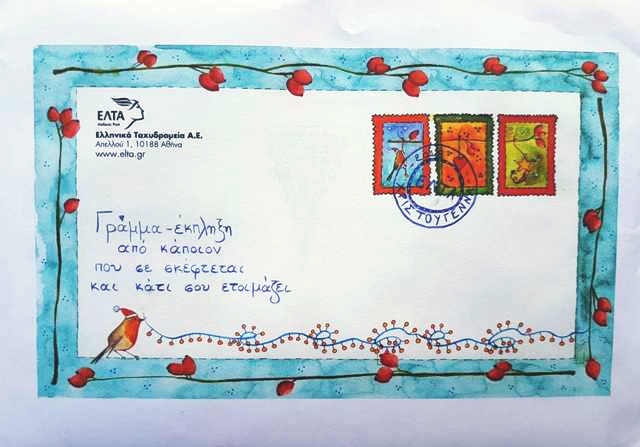 ΕΛΤΑ
Hellenic Post
Ελληνικά Ταχυδρομεία Α.Ε.
Απελλού 1, 10188 Αθήνα
www.elta.gr
ΧΡΙΣΤΟΥΓΕΝΝ
Γράμμα-έκπληξη
από κάποιον
που σε σκέφτεται
και κάτι σου ετοιμάζει